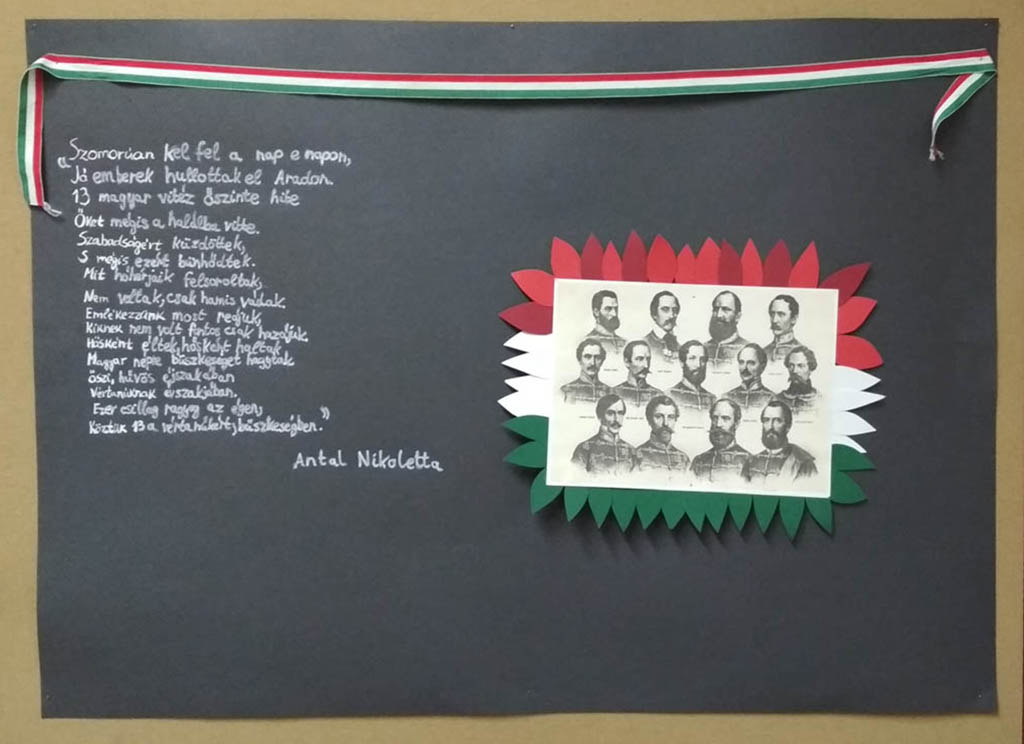 „Szomorúan kél fel a nap e napon,
Jó emberek hullottak el Aradon.
13 magyar vitéz őszinte hite
Őket mégis a halálba vitte.
Szabadságért küzdöttek,
S mégis ezért bűnhődtek.
Mit hóhérjaik felsoroltak,
Nem voltak, csak hamis vádak.
Emlékezzünk most reájuk,
Kiknek nem volt fontos csak hazájuk.
Hősként éltek, hősként haltak,
Magyar népre büszkeséget hagytak
őszi, hűvös éjszakában
Vértanúknak évszakjában.
Ezer csillag ragyog az égen,
Köztük 13 a vértanúkért, büszkeségben.”
Antal Nikoletta